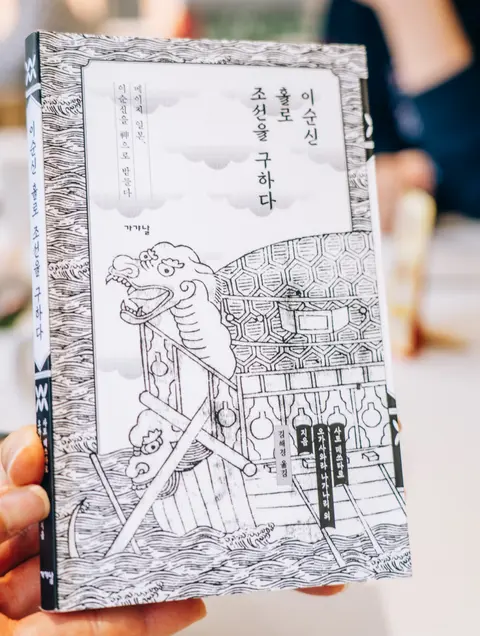 이순신
홀로
조선을 구하다
메이지 일본,
이순신을 神으로 받들다
가갸날
사토 데쓰타로
오가사와라 나가나리 외
지음
김해경 옮김
이순신 홀로 조선을 구하다
가갸날